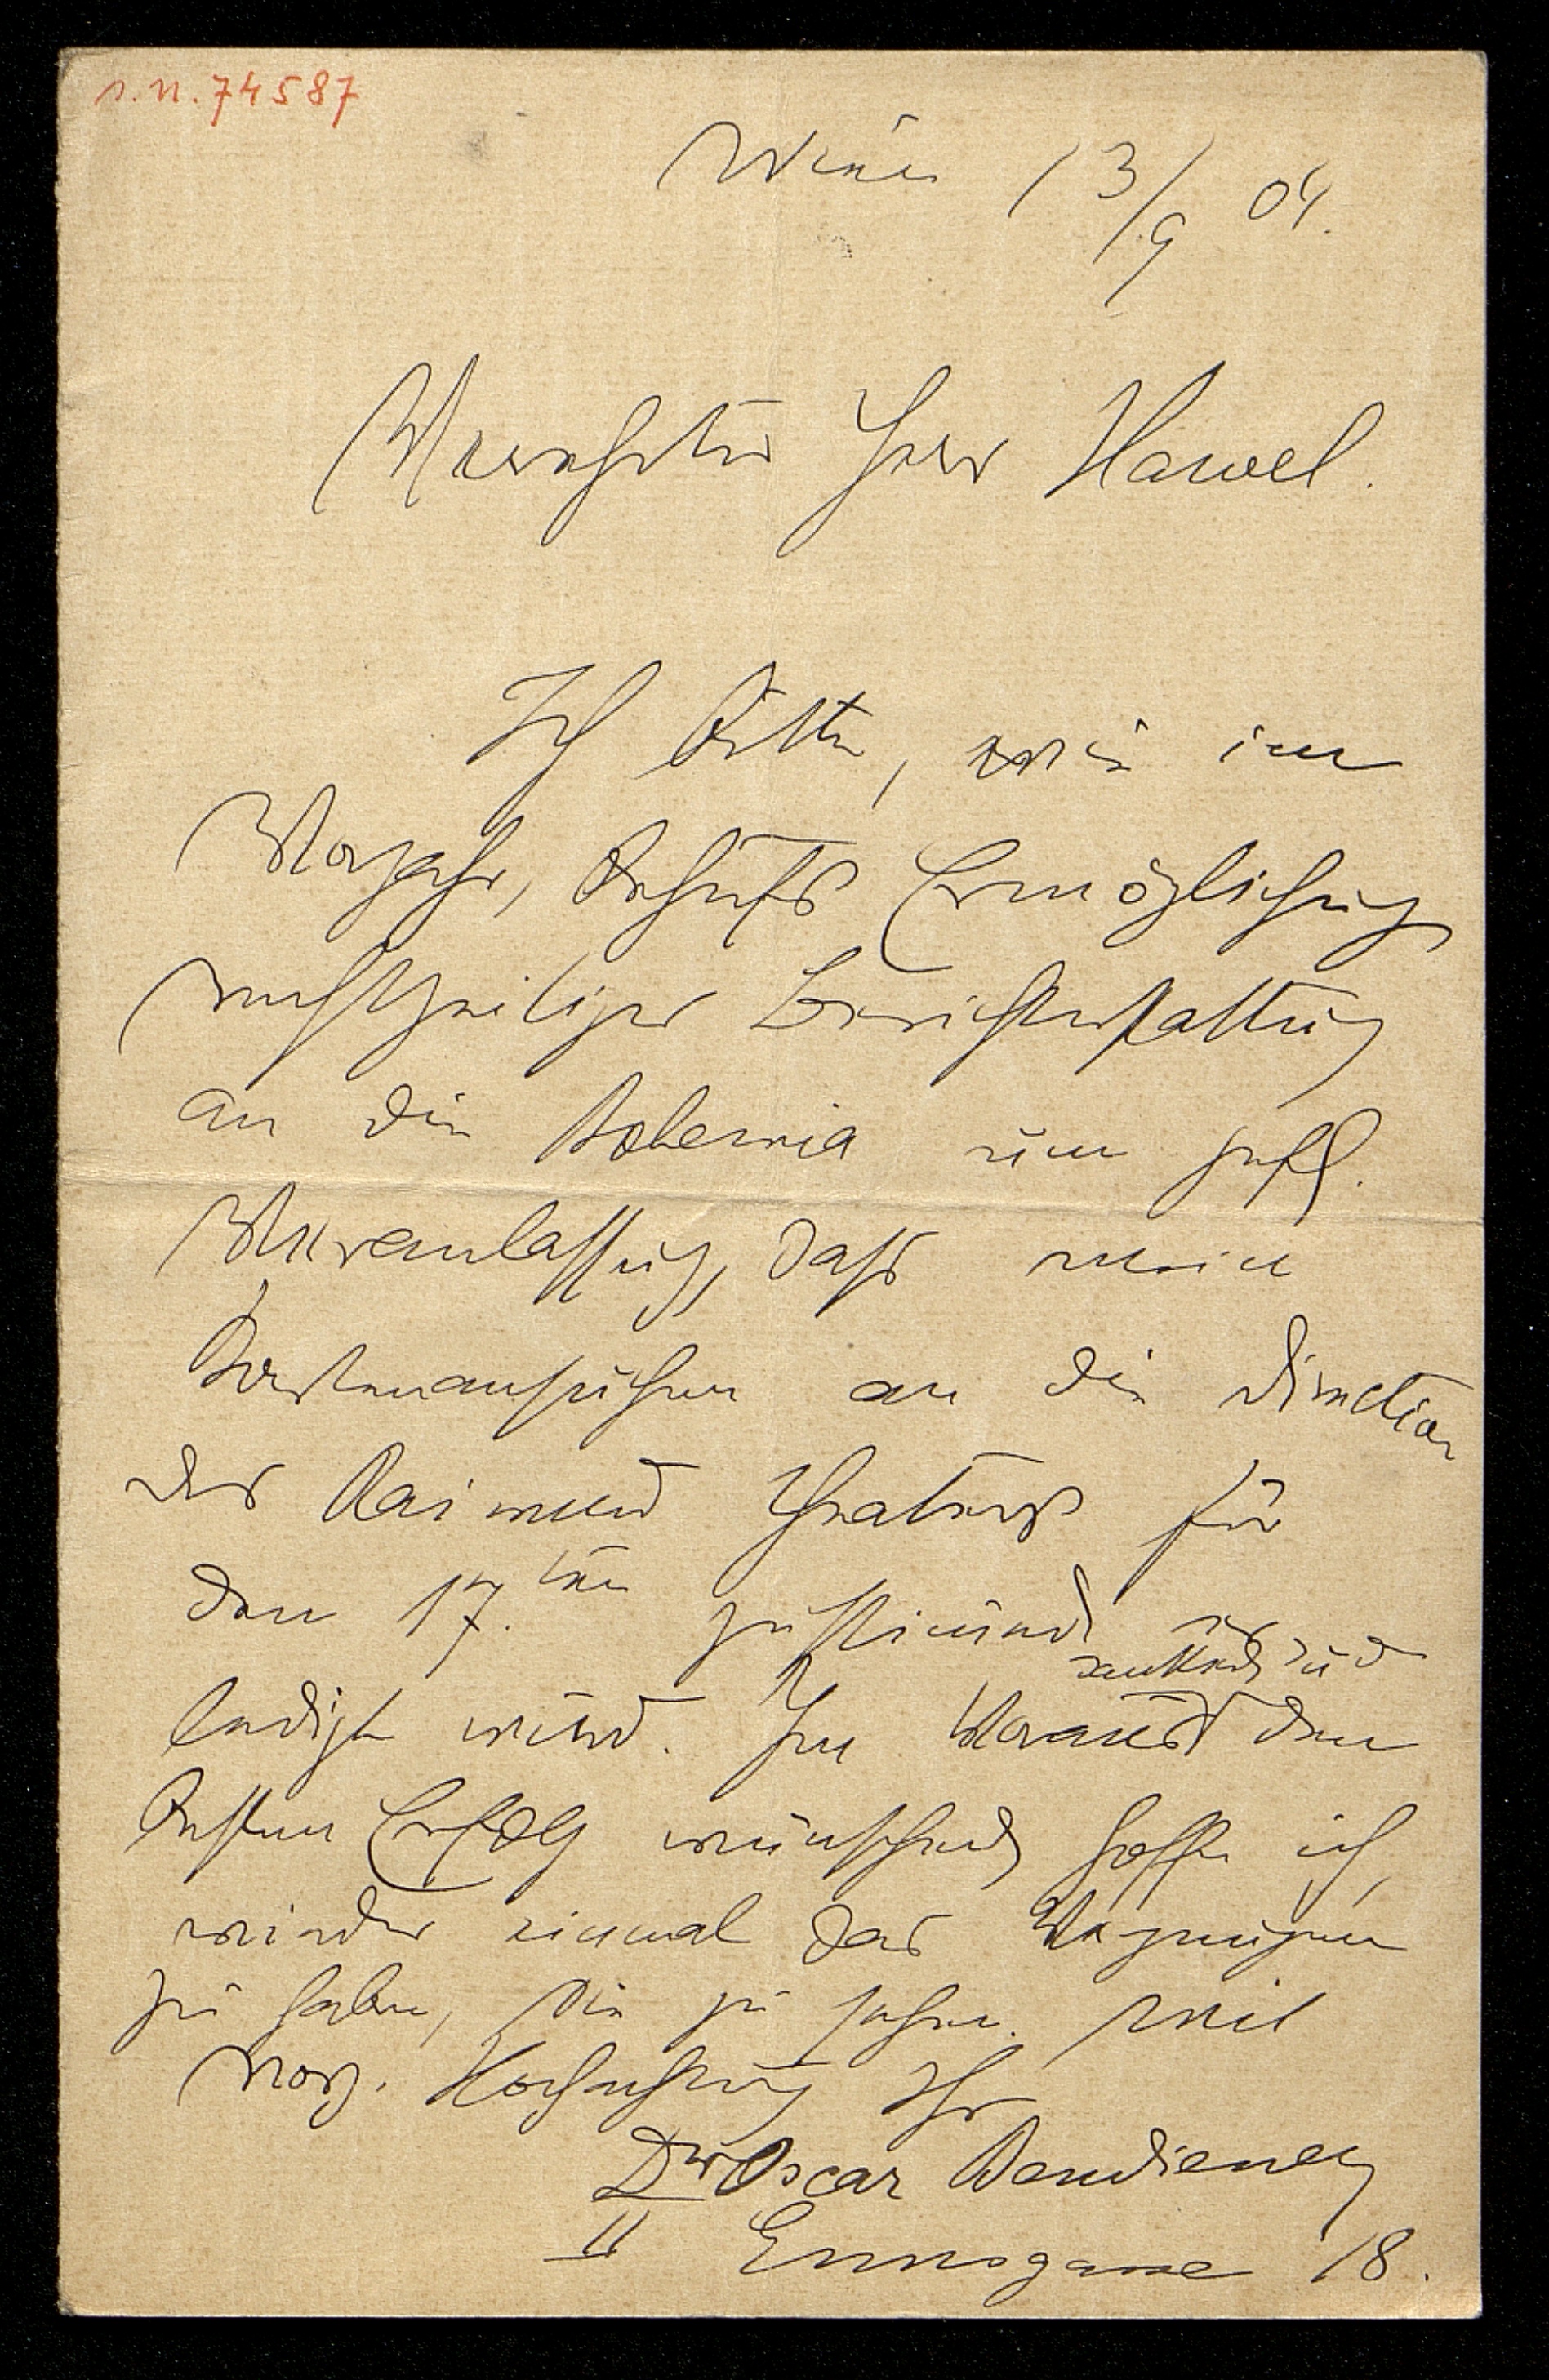 I.N. 74587
Wien 13/9 04.
Verehrter Herr Hawel.
Ich bitte, wie im
Vorjahr, behufs Ermöglichung
rechtzeitiger Berichterstattung
an die Bohemia um gefl.
Veranlassung, dass mein
Kartenansuchen an die Direction
des Raimund Theaters für
den 17.ten zustimmend er
ledigt wird. Im Voraus dankend und den
besten Erfolg wünschend hoffe ich,
wieder einmal das Vergnügen
zu haben, Sie zu sehen. Mit
vorz. Hochachtung Ihr
Dr Oscar Bendiener
II Ennsgasse 18.